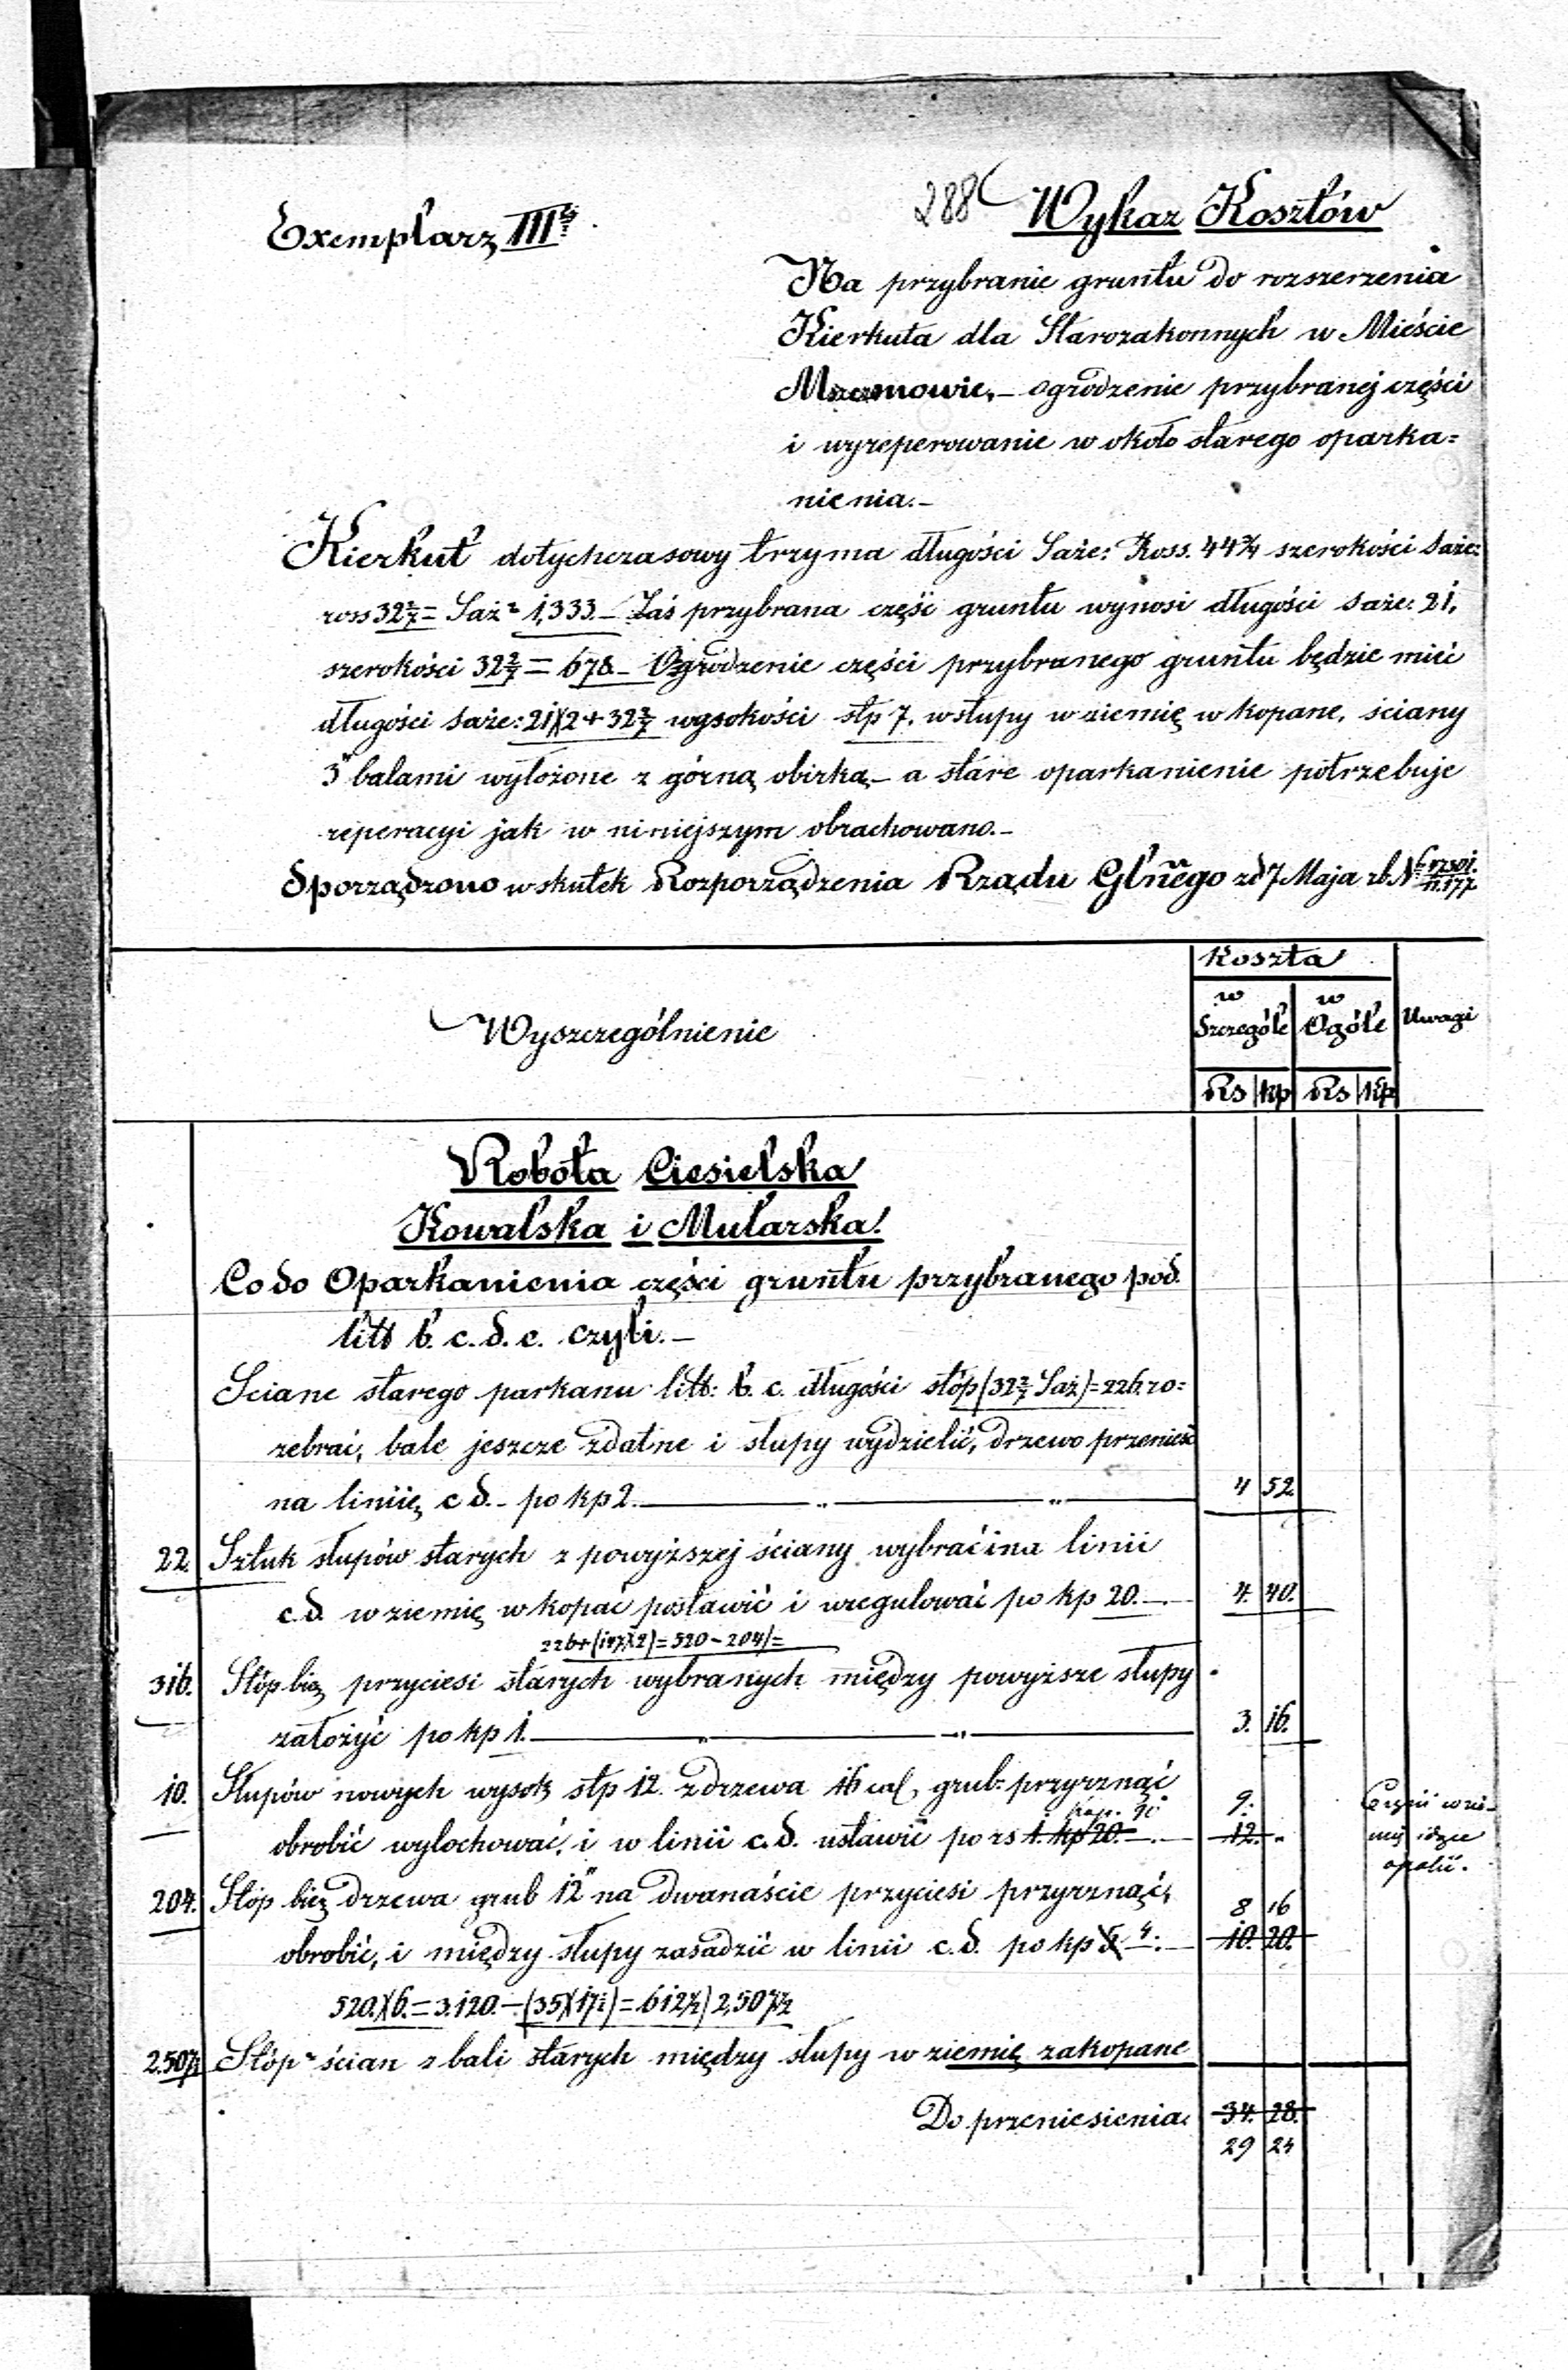 288
Exemplarz III
Wykaz Kosztów
Na przybranie gruntu do rozszerzenia
Kierkuta dla Starozakonnych w Mieście
Mszczonowie,– ogrodzenie przybranej części
i wyreperowanie w około starego oparka=
nienia.–
Kierkut dotychczasowy trzyma długości Saże: Ross. szerokości Saże:
ross 32 2/7 = Saż² 1,333.– Zaś przybrana część gruntu wynosi długości Saże: 21,
szerokości 32 2/7 = 678.– Ogrodzenie części przybranego gruntu będzie mieć
długości Saże: 21)(2+32 2/7 wysokości stp 7. w słupy w ziemię w kopane, ściany
3" balami wyłożone z górną obirką– a stare oparkanienie potrzebuje
reperacyi jak w niniejszym obrachowano.–
Sporządzono w skutek Rozporządzenia Rządu Glnego zd 7 Maja rb. N
Wyszczególnienie
Koszta
w Szczególe
w Ogóle
Uwagi
Rs kp Rs kp
Robota Ciesielska
Kowalska i Mularska.
Co do Oparkanienia części gruntu przybranego pod
litt b. c. d. e. czyli.–
Sciane starego parkanu litt: b. c. długości stóp (32 2/7 Saż) = 226. ro=
zebrać, bale jeszcze zdatne i słupy wydzielić, drzewo przenieść
na liniię c d. – po kp 2. 4 52
22. Sztuk słupów starych z powyższej ściany wybrać i na linii
c. d. w ziemię w kopać postawić i uregulować po kp 20. 4. 40.
226+(147)(2)=520–204/=
316. Stóp bież przyciesi starych wybranych między powyższe słupy
założyć po kp 1. 3. 16.
10. Słupów nowych wysok stp 12. z drzewa 16 cal, grub: przyrznąć 9.
kop. 90
obrobić wylochować, i w linii c. d. ustawić po rs 1. kp 20. 12.
204. Stóp bież drzewa grub 12" na dwanaście przyciesi przyrznąć, 8 16
obrobić, i między słupy zasadzić w linii c. d. po kp 5 4. 10. 20.
520.)(6.=3.120.–(35)(17½)=612½) 2,507½
2.507½ Stóp² ścian z bali starych między słupy w ziemię zakopane
Do przeniesienia. 34. 28.
29 24